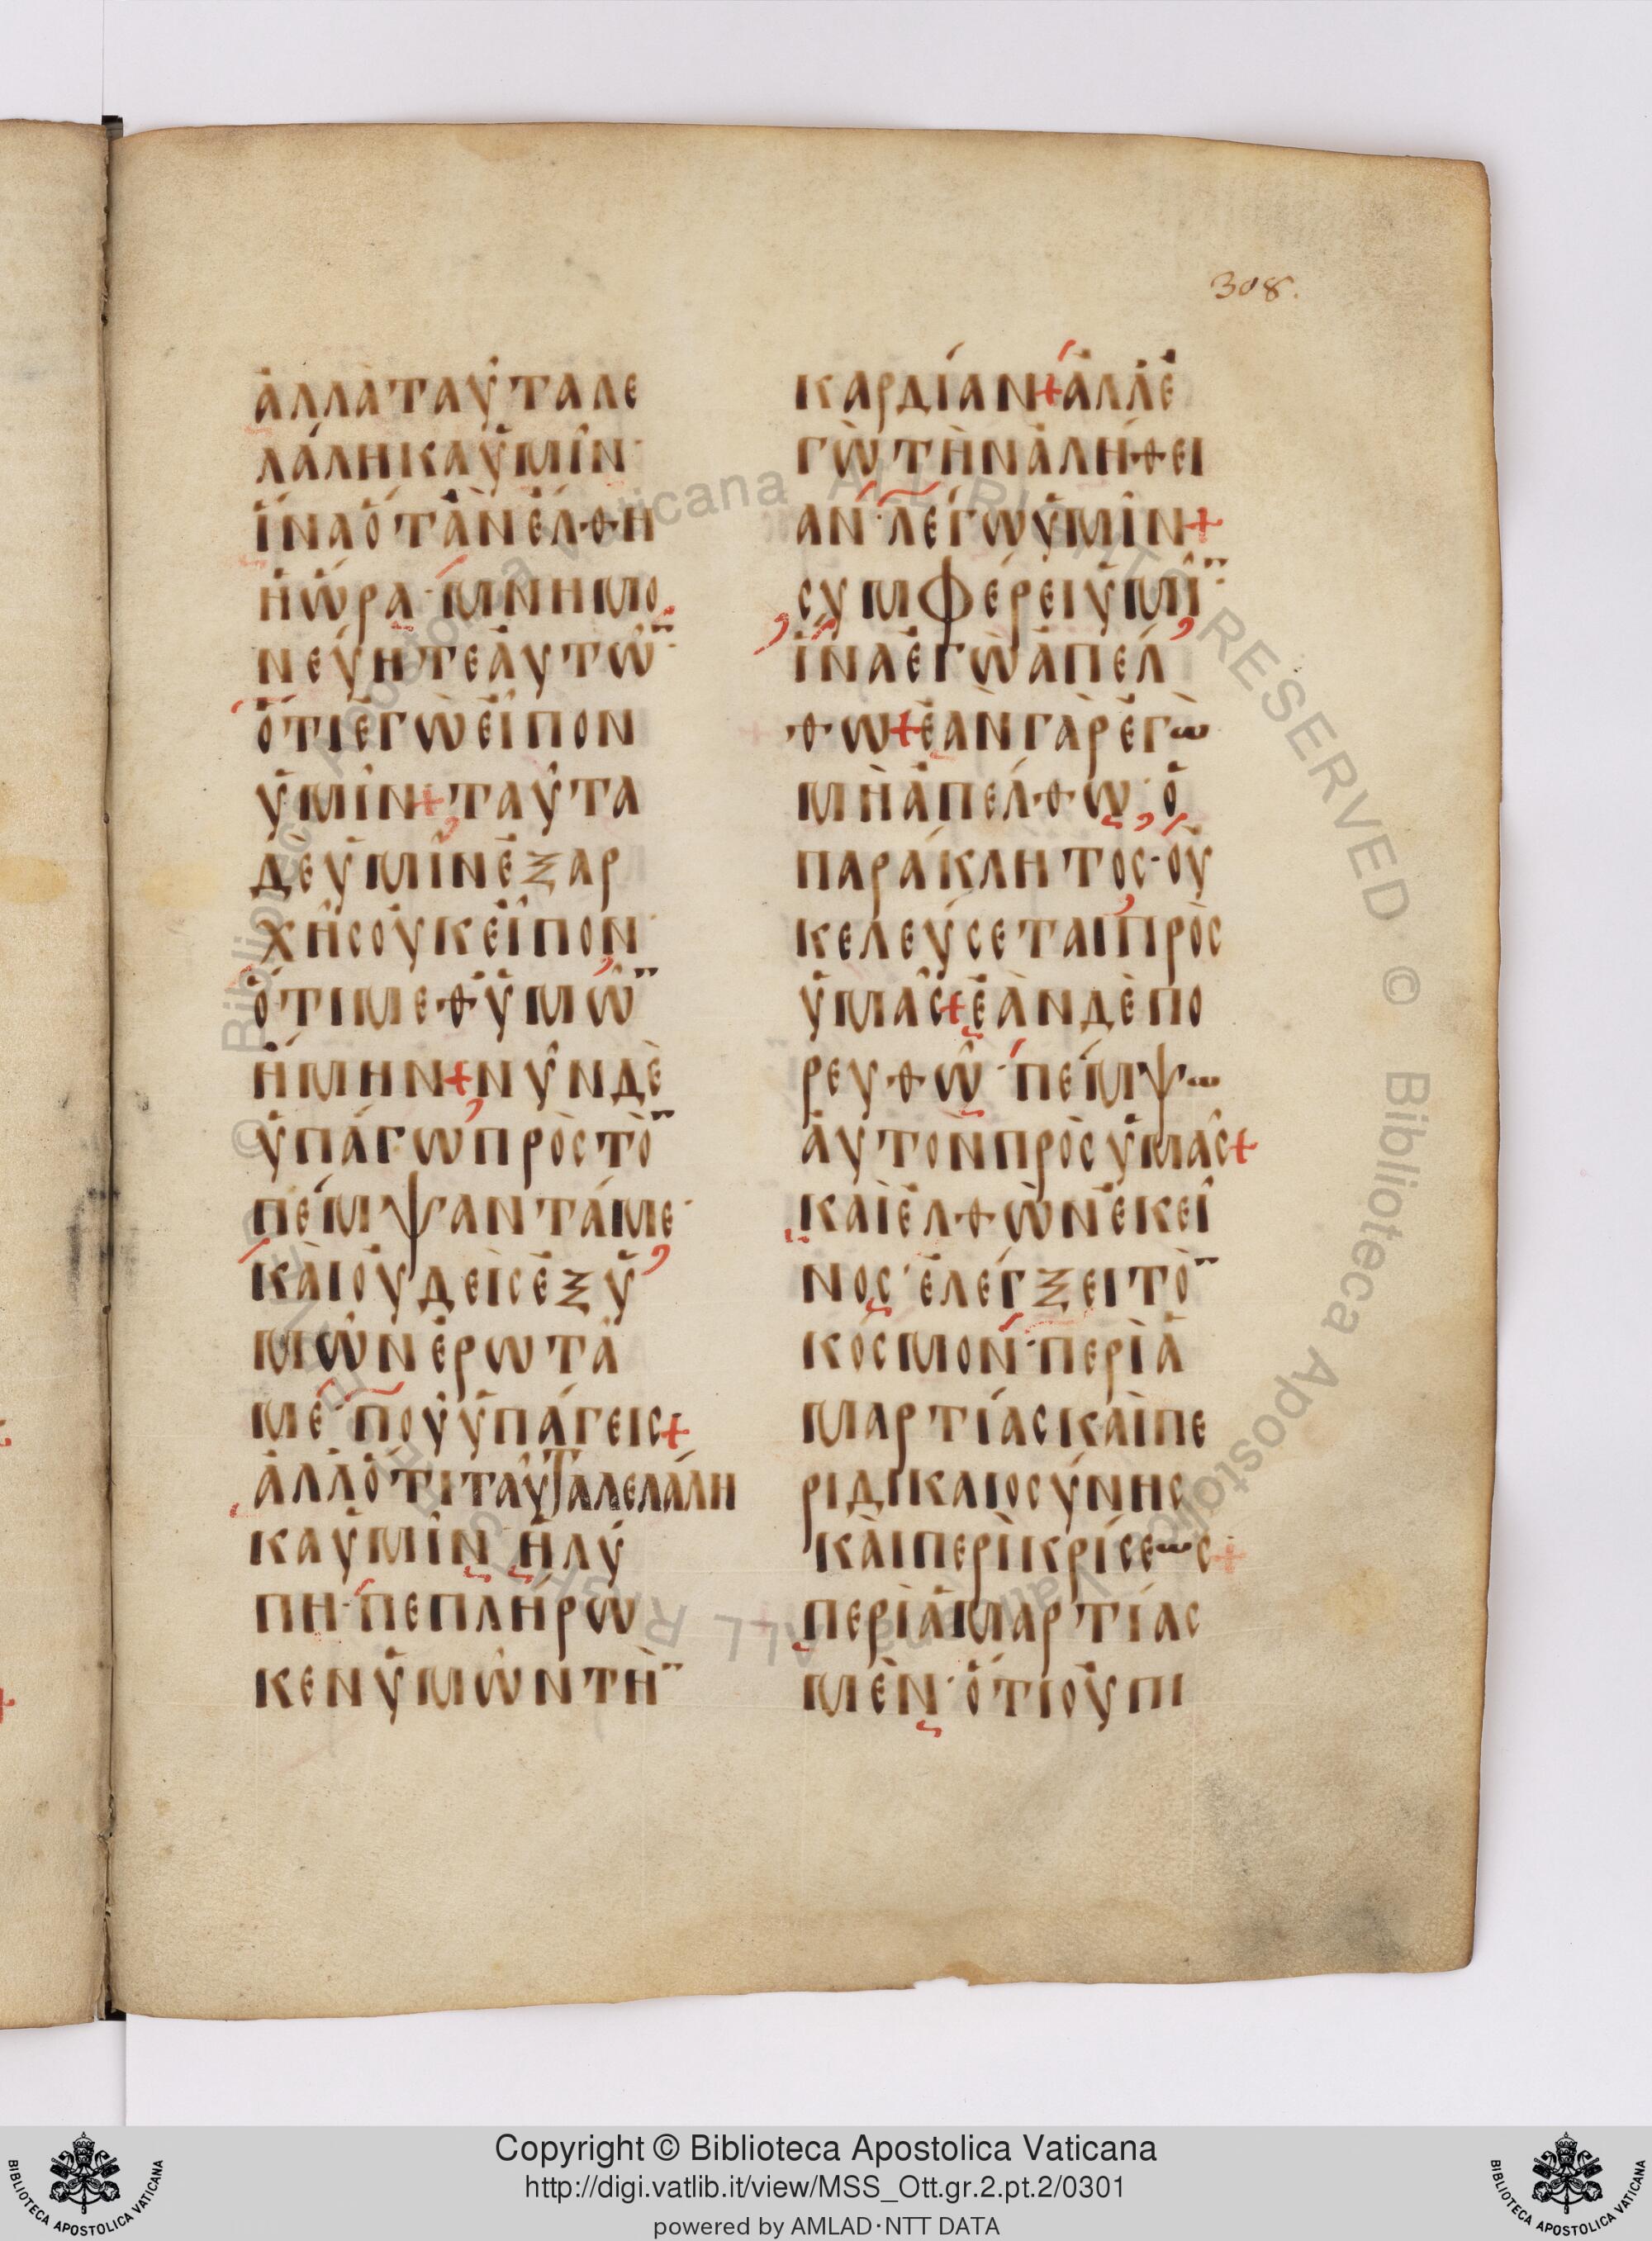 308.
ἀλλὰ ταῦτα λε
λάληκα ὑμῖν·
ἵνα ὅταν ἔλθη
ἡ ὥρα· μνημο
νεύητε αὐτῶ̈
ὅτι ἐγὼ εἶπον
ὑμῖν + ταῦτα
δὲ ὑμῖν ἐξ ἀρ
χῆς οὐκ εἶπον·
ὅτι μεθ ὑμῶ̈
ἤμην + νῦν δὲ
ὑπάγω πρὸς τὸ̈
πέμψαντά με·
καὶ οὐδεὶς ἐξ ὑ
μῶν ἐρωτᾶ
με· ποῦ ὑπάγεις +
ἀλλ ὅτι ταῦτα λελάλη
κα ὑμῖν· ἡ λύ
πη· πεπλήρω
κεν ὑμῶν τὴ̈
καρδίαν + ἀλλ ἐ
γὼ τὴν ἀλήθει
αν· λέγω ὑμῖν +
συμφέρει ὑμῖ̈
ἵνα ἐγὼ ἀπέλ
θω + ἐὰν γὰρ ἐγω
μὴ ἀπέλθω· ὁ
παράκλητος· οὐ
κ ἐλεύσεται πρὸς
ὑμᾶς + ἐὰν δὲ πο
ρευθῶ· πέμψω
αὐτὸν πρὸς ὑμᾶς +
καὶ ἐλθὼν ἐκεῖ
νος· ἐλέγξει τὸ̈
κόσμον· περὶ ἁ
μαρτίας καὶ πε
ρὶ δικαιοσύνης
καὶ περὶ κρίσεως +
περὶ ἁμαρτίας
μὲν· ὅτι οὐ πι
Copyright © Biblioteca Apostolica Vaticana
http://digi.vatlib.it/view/MSS_Ott.gr.2.pt.2/0301
powered by AMLAD·NTT DATA
BIBLIOTECA APOSTOLICA VATICANA
BIBLIOTECA APOSTOLICA VATICANA
© Biblioteca Apostolica Vaticana ALL RIGHTS RESERVED © Biblioteca Apostolica Vaticana ALL RIGHTS RESERVED